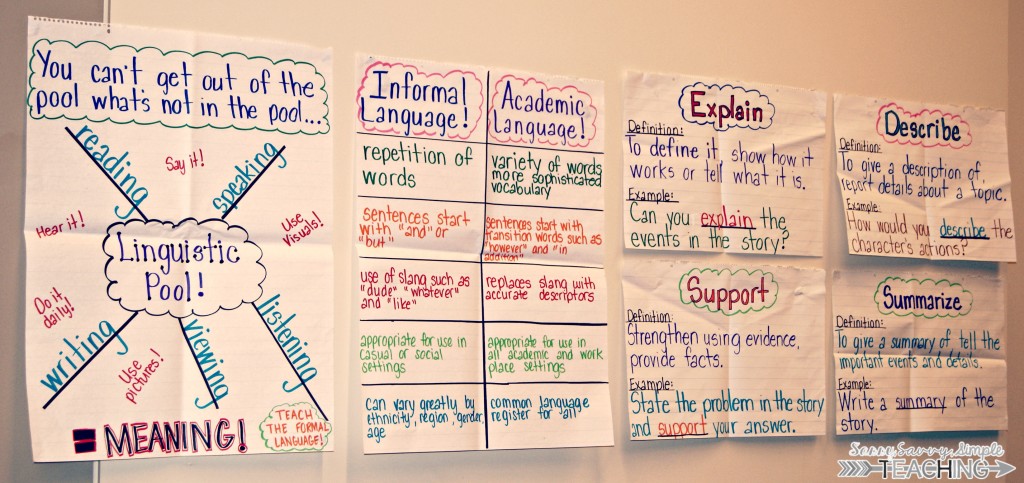 You can't get out of the
pool what's not in the pool...
reading
Say it!
speaking
Hear it!
Use
Visuals!
Linguistic
Pool!
Do it
daily!
writing
Use
pictures!
viewing
listening
= MEANING!
TEACH
THE FORMAL
LANGUAGE!
Informal
Language!
Academic
Language!
repetition of
words
variety of words
more sophisticated
vocabulary
sentences start
with "and" or
"but"
sentences start with
transition words such as
"however" and "in
addition"
use of slang such as
"dude" "whatever"
and "like"
replaces slang with
accurate descriptors
appropriate for use in
casual or social
settings
appropriate for use in
all academic and work
place settings
can vary greatly by
ethnicity, region, gender,
age
common language
register for all
Explain
Definition:
To define it, show how it
works or tell what it is.
Example:
Can you explain the
events in the story?
Describe
Definition:
To give a description of,
report details about a topic.
Example:
How would you describe the
character's actions?
Support
Definition:
Strengthen using evidence,
provide facts.
Example:
State the problem in the story
and support your answer.
Summarize
Definition:
To give a summary of, tell the
important events and details.
Example:
Write a summary of the
story.
Savvy, Simple
TEACHING